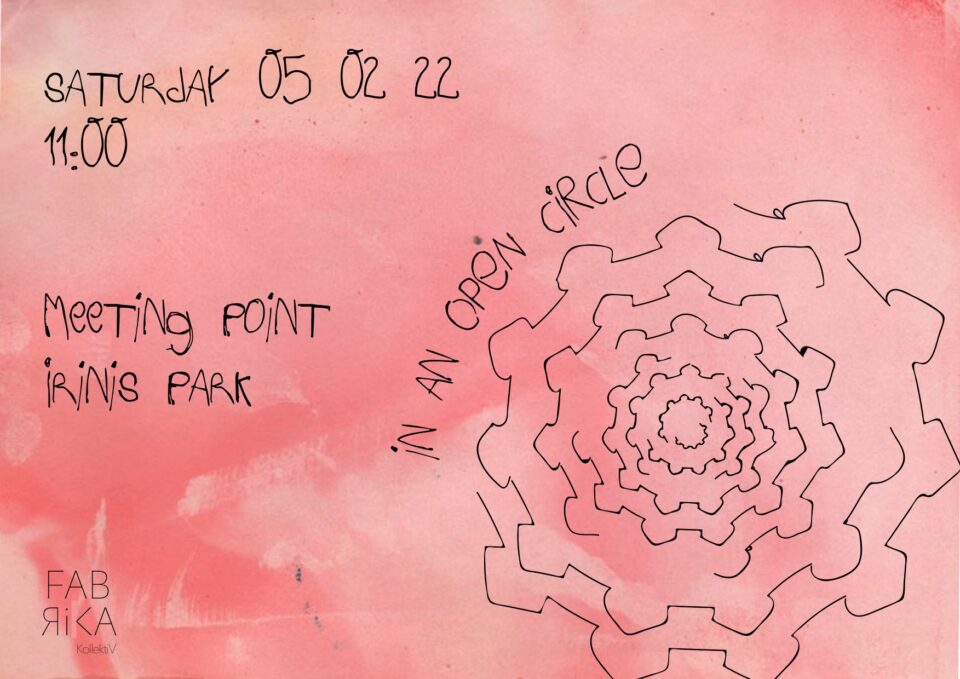 SATURdAY 05 02 22
11:00
IN AN OPeN CiRCLe
MeeTiNg POiNT
iRiNiS PARK
FAB
ЯiKA
KollektiV